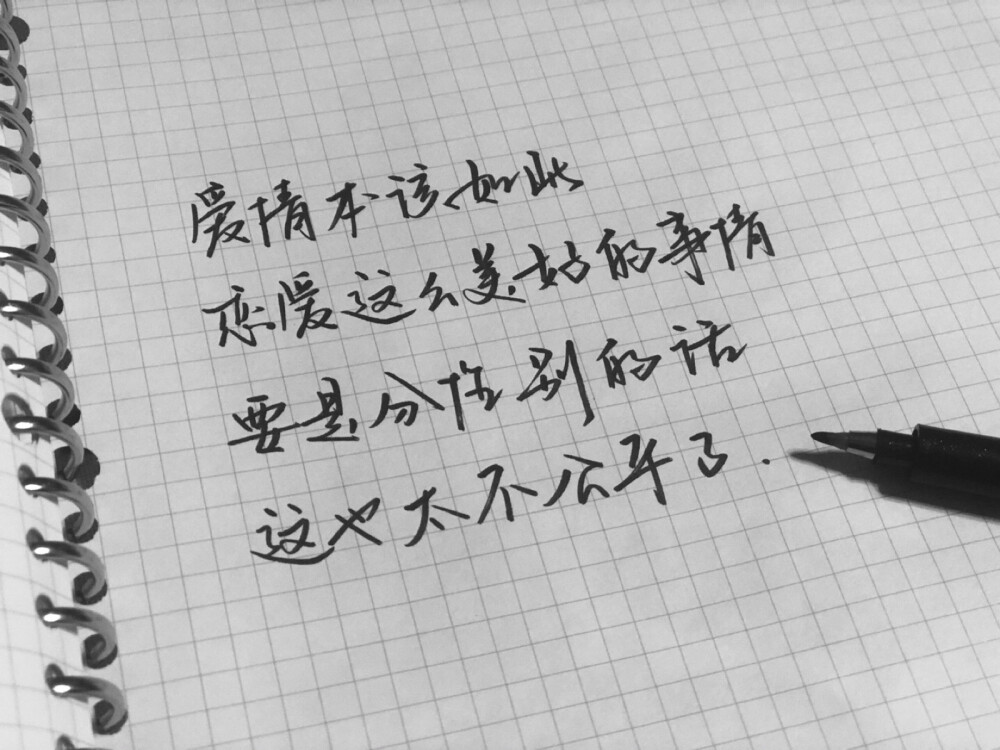 爱情本该如此
恋爱这么美好的事情
要是分性别的话
这也太不公平了.